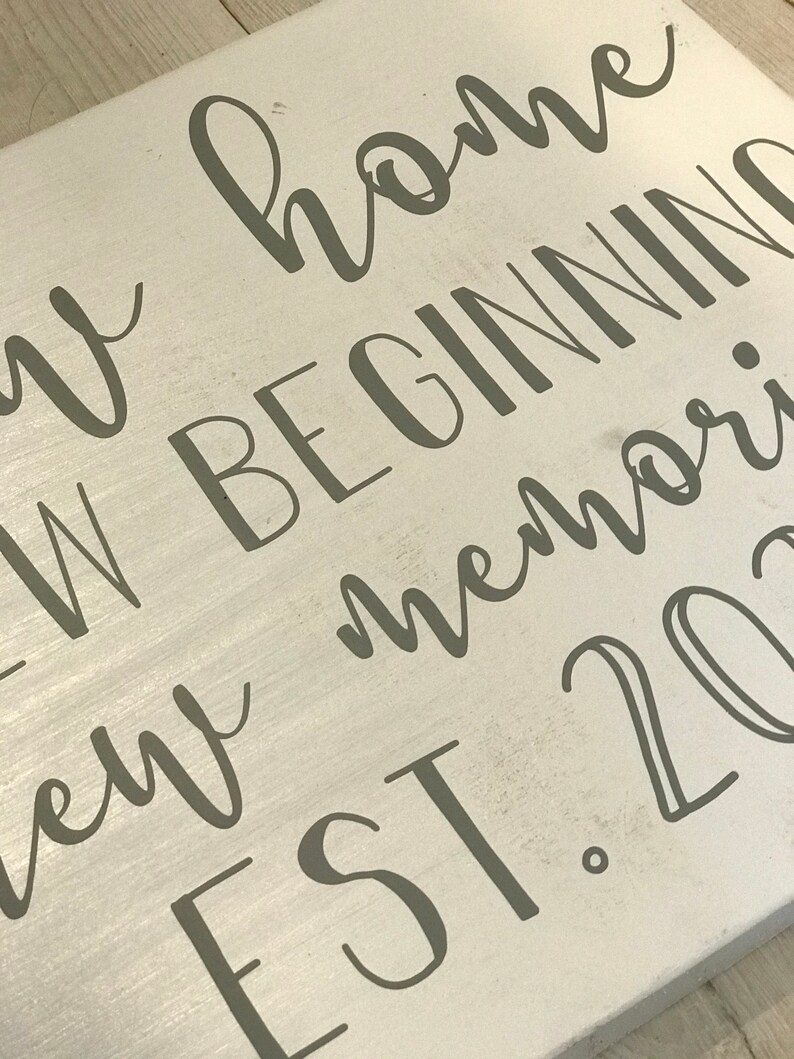 home
BEGINNING
new memori
EST. 202